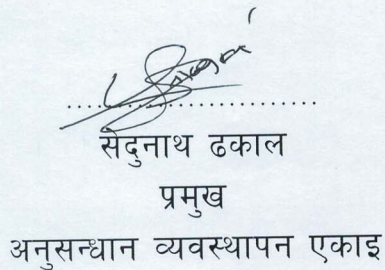 सेदुनाथ ढकाल
प्रमुख
अनुसन्धान व्यवस्थापन एकाइ